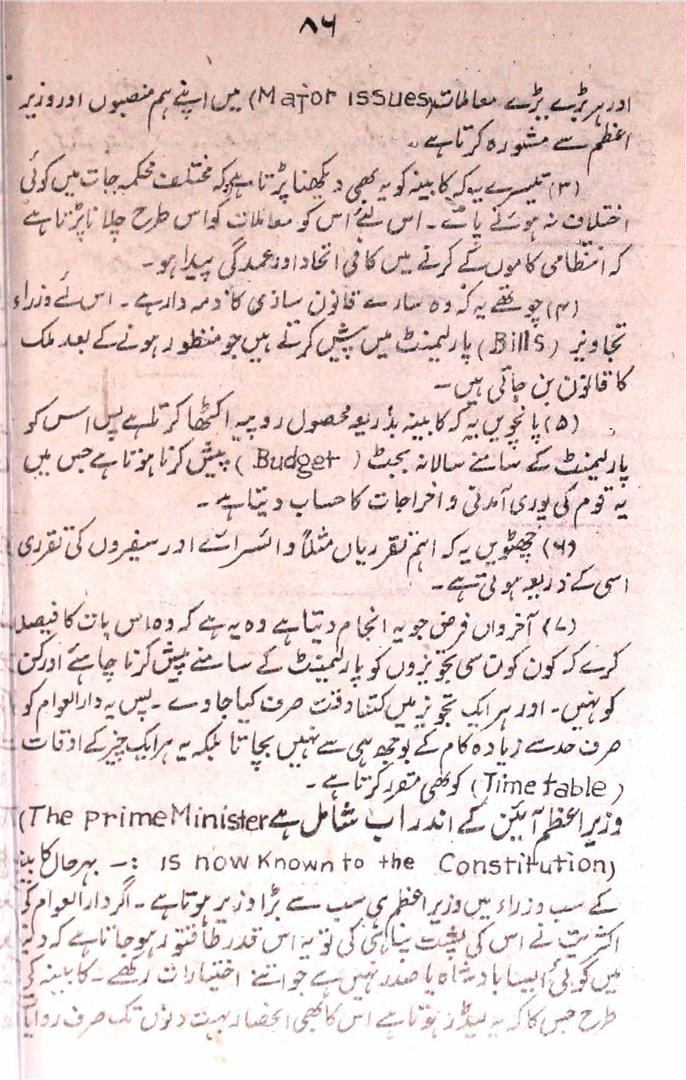 ۸۶
اور ہر بڑے بڑے معاملات (Major issues) میں اپنے ہم منصبوں اور وزیر
اعظم سے مشورہ کرتا ہے۔
(۳) تیسرے یہ کہ کابینہ کو یہ بھی دیکھنا پڑتا ہے کہ مختلف محکمہ جات میں کوئی
اختلاف نہ ہونے پائے۔ اس لئے اس کو معاملات کو اس طرح چلانا پڑتا ہے
کہ انتظامی کاموں کے کرنے میں کافی اتحاد اور عمدگی پیدا ہو۔
(۴) چوتھے یہ کہ وہ سارے قانون سازی کا ذمہ دار ہے۔ اس لئے وزراء
تجاویز (Bills) پارلیمنٹ میں پیش کرتے ہیں جو منظور ہونے کے بعد ملک
کا قانون بن جاتی ہیں۔
(۵) پانچویں یہ کہ کابینہ بذریعہ محصول روپیہ اکٹھا کرتا ہے پس اس کو
پارلیمنٹ کے سامنے سالانہ بجٹ (Budget) پیش کرنا ہوتا ہے جس میں
یہ قوم کی پوری آمدنی و اخراجات کا حساب دیتا ہے۔
(۶) چھٹویں یہ کہ اہم تقرریاں مثلاً وائسرائے اور سفیروں کی تقرری
اسی کے ذریعہ ہوتی ہے۔
(۷) آخرواں فرض جو یہ انجام دیتا ہے وہ یہ ہے کہ وہ اس بات کا فیصلہ
کرے کہ کون کون سی تجویزوں کو پارلیمنٹ کے سامنے پیش کرنا چاہئے اور کن
کو نہیں۔ اور ہر ایک تجویز میں کتنا وقت صرف کیا جاوے۔ پس یہ دارالعوام کو
صرف حد سے زیادہ کام کے بوجھ ہی سے نہیں بچاتا بلکہ یہ ہر ایک چیز کے اوقات
(Time table) کو بھی مقرر کرتا ہے۔
وزیر اعظم آئین کے اندر اب شامل ہے (The prime Minister
is now Known to the Constitution) :- بہر حال کابینہ
کے سب وزراء میں وزیر اعظم ہی سب سے بڑا وزیر ہوتا ہے۔ اگر دارالعوام کی
اکثریت نے اس کی پشت پناہی کی تو یہ اس قدر طاقتور ہو جاتا ہے کہ دنیا
میں کوئی ایسا بادشاہ یا صدر نہیں ہے جو اتنے اختیارات رکھے۔ کابینہ کی
طرح جس کا کہ یہ لیڈر ہوتا ہے اس کا بھی انحصار بہت دنوں تک صرف